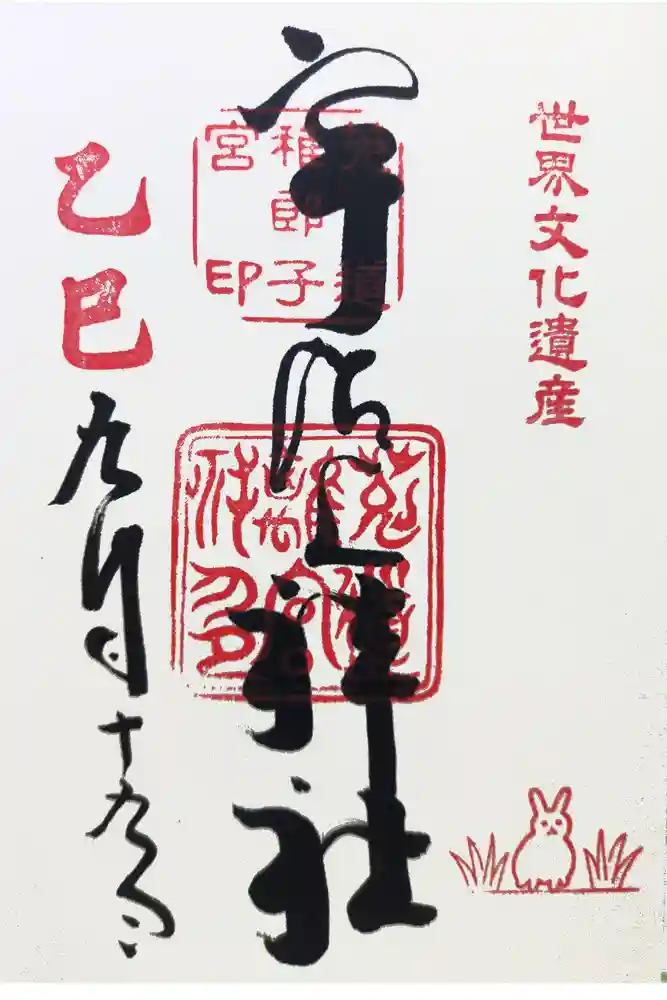 世界文化遺産
宇治上神社
菟道
稚郎子
宮印
菟道
離宮
乙巳九月十九日